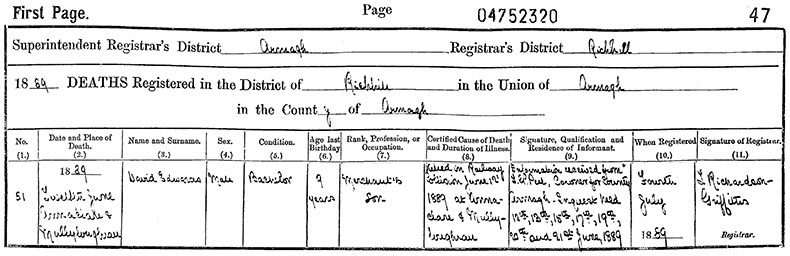 First Page. Page 04752320 47
Superintendent Registrar's District Armagh Registrar's District Richhill
1889 DEATHS Registered in the District of Richhill in the Union of Armagh
in the County of Armagh
No. (1.)
Date and Place of Death. (2.)
Name and Surname. (3.)
Sex. (4.)
Condition. (5.)
Age last Birthday (6.)
Rank, Profession, or Occupation. (7.)
Certified Cause of Death and Duration of Illness. (8.)
Signature, Qualification and Residence of Informant. (9.)
When Registered (10.)
Signature of Registrar. (11.)
51
1889
Twelfth June
&
David
Male
Bachelor
9
years
Merchant's
Son
Killed in Railway
Collision June 12th
1889 at
&
Information received from
Peel, Coroner for County
Armagh. Inquest held
12th, 13th, 15th, 17th, 19th,
20th and 21st June, 1889
Fourth
July
1889
Richardson-
Griffiths
Registrar.